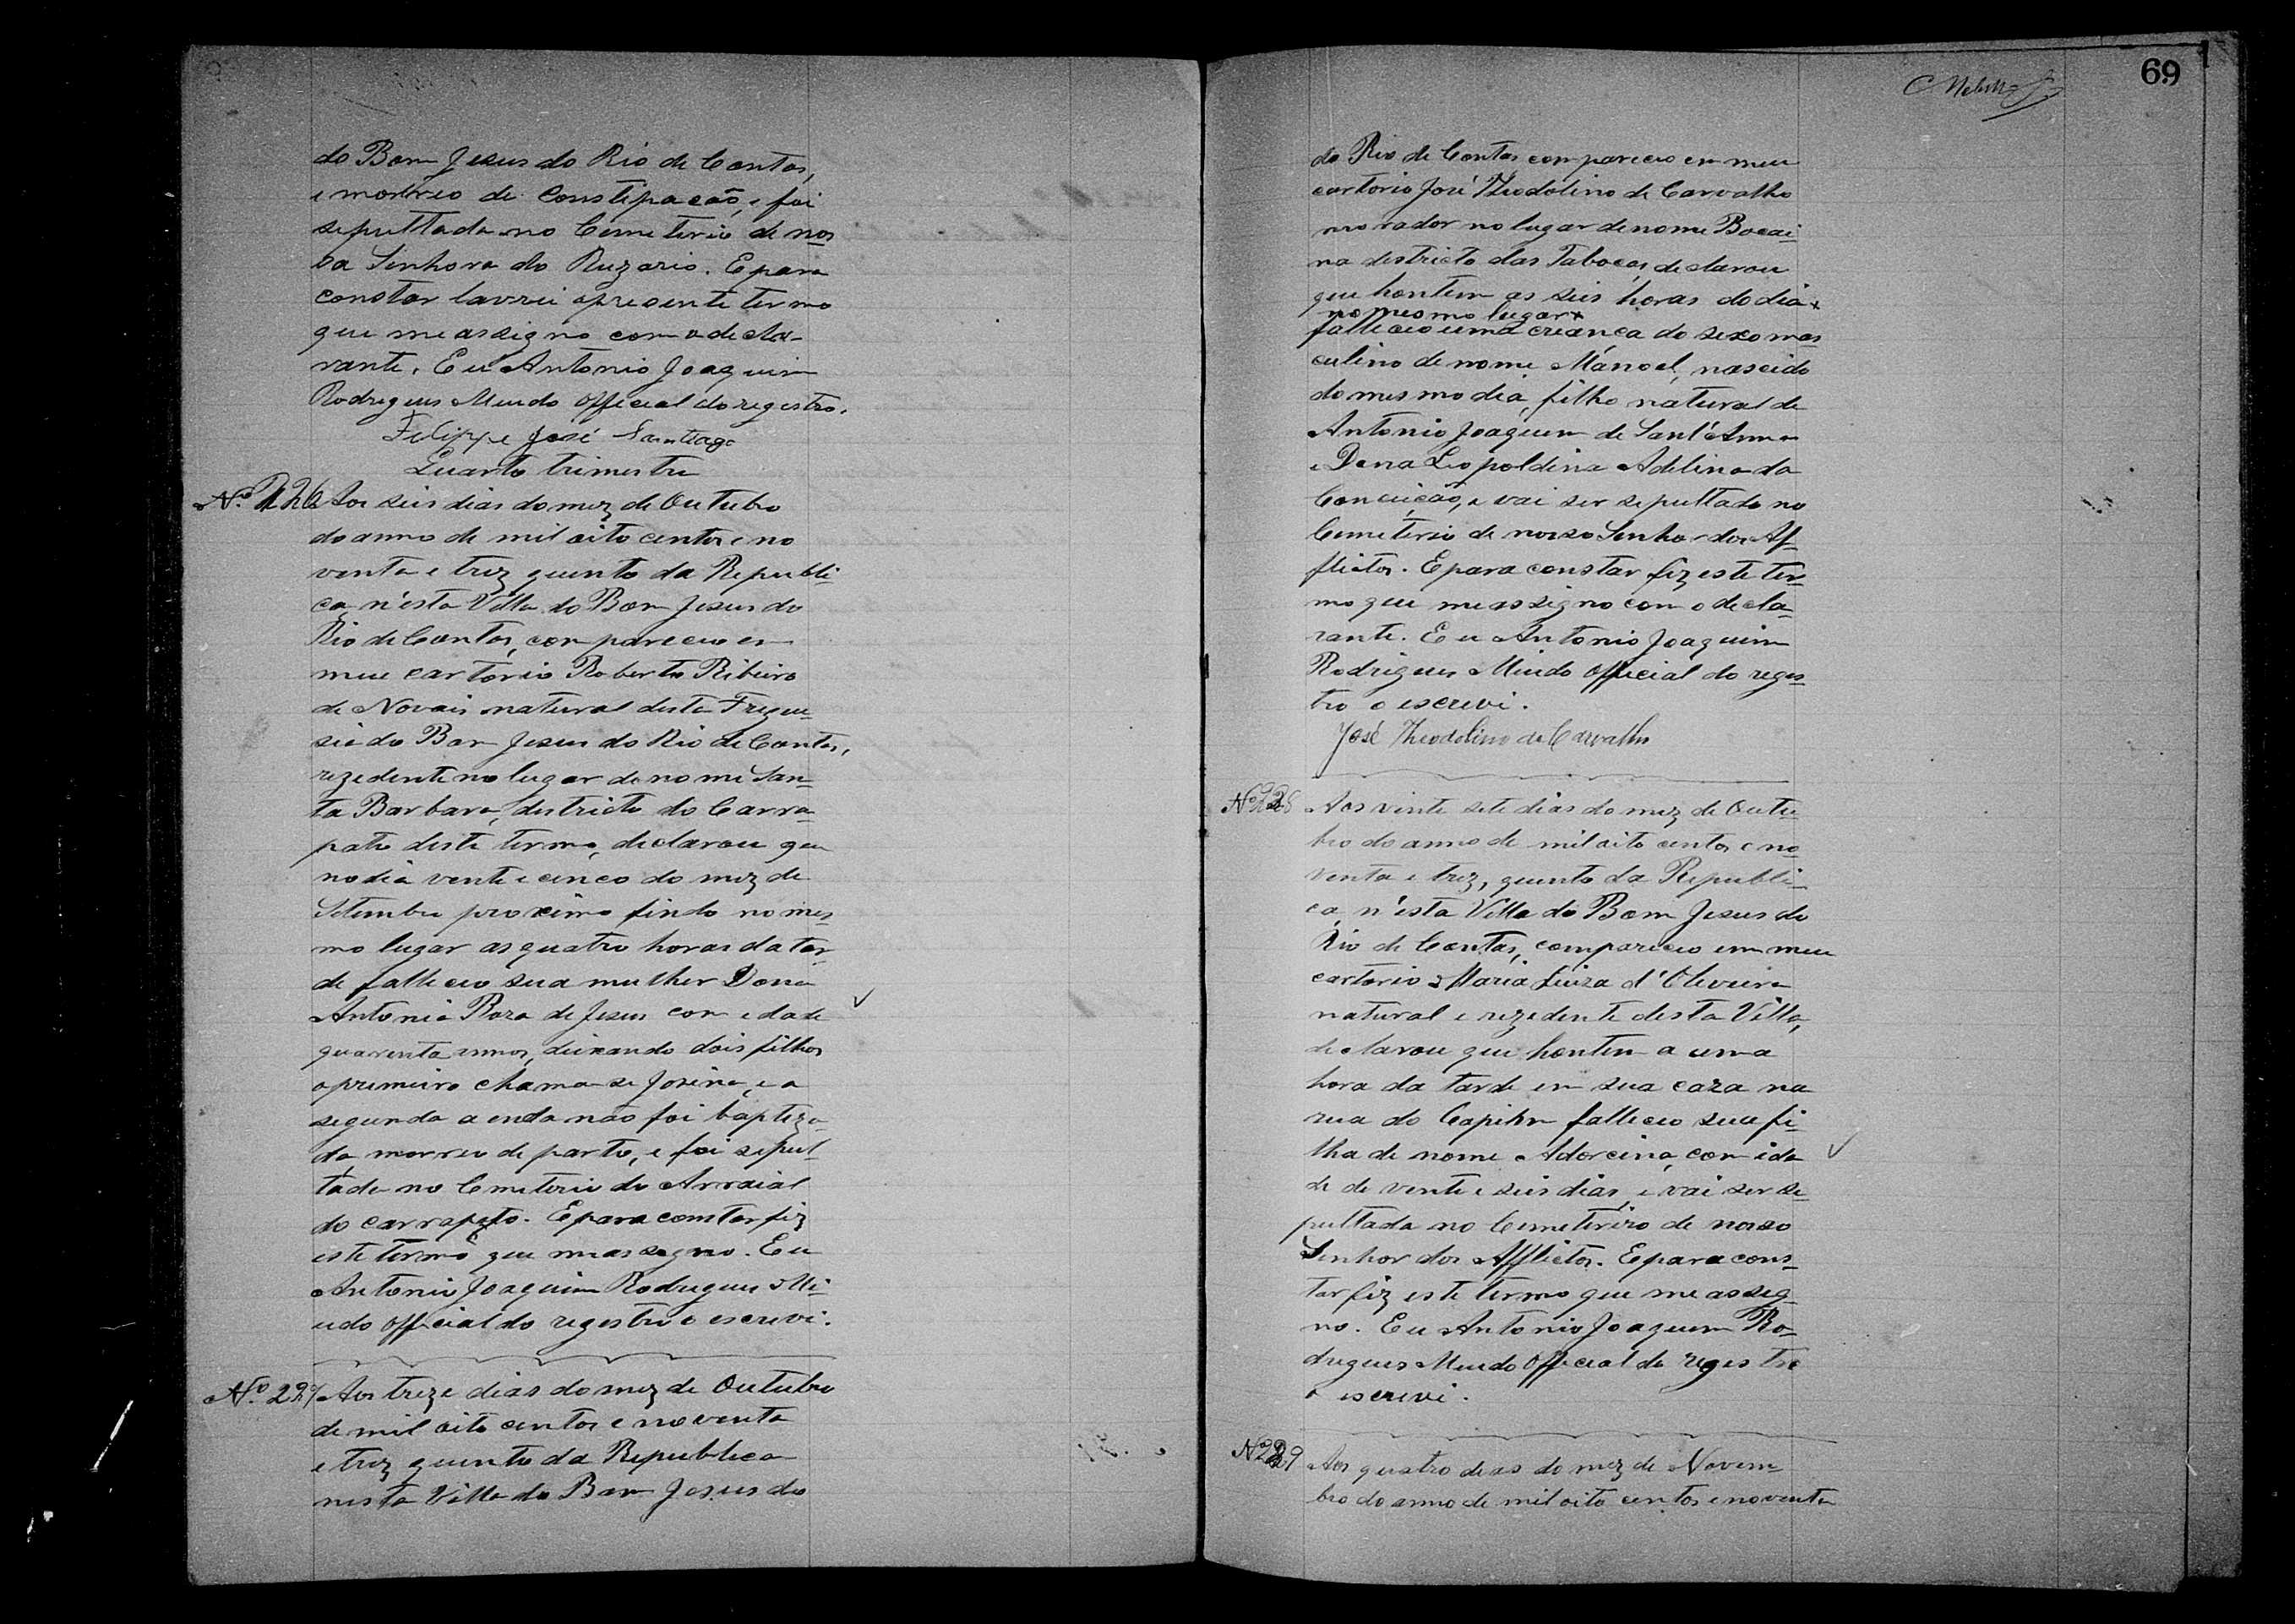 do Bom Jesus do Rio de Contas,
e morreo de Constipação, e foi
sepultada no Cemeterio de nos
sa Senhora do Ruzario. E para
constar lavrei o presente termo
que me assigno com o decla-
rante. Eu Antonio Joaquim
Rodrigues Miudo official do registro.
Felippe José Santiago
Quarto trimestre
Nº 226 Aos seis dias do mez de Outubro
do anno de mil oito centos e no
venta e trez quinto da Republi-
ca, n'esta Villa do Bom Jesus do
Rio de Contas, compareceo em
meu cartorio Roberto Ribeiro
de Novais natural desta Fregue-
sia do Bom Jesus do Rio de Contas,
rezedente no lugar de nome San-
ta Barbara, destricto do Carra-
pato deste termo, declarou que
no dia vente e cinco do mez de
Setembro proximo findo no mes
mo lugar as quatro horas da tar
de falleceo sua mulher Dona
Antonia Roza de Jesus com edade
quarenta annos, deixando dois filhos
o premeiro chama-se Josina, e a
segunda a enda não foi baptiza-
da morreo de parto, e foi sepul-
tada no Cemeterio do Arraial
do carrapato. E para constar fiz
este termo que me assegno. Eu
Antonio Joaquim Rodrigues Mi-
udo official do registro o escrevi.
Nº 227 Aos treze dias do mez de Outubro
de mil oito centos e noventa
e trez quinto da Republica
nesta Villa do Bom Jesus do
69
do Rio de Contas compareceo em meu
cartorio José Theodolino de Carvalho
morador no lugar de nome Bocai-
na destricto das Tabocas, declarou
que hontem as seis horas do dia x
no mesmo lugar x
falleceo uma creança do sexo mas
culino de nome Manoel, nascido
do mesmo dia, filho natural de
Antonio Joaquim de Sant'Anna
e Dona Leopoldina Adelina da
Conceição, e vai ser sepultado no
Cemeterio de nosso Senhor dos Af-
flictos. E para constar fiz este ter-
mo que me assigno com o decla-
rante. Eu Antonio Joaquim
Rodrigues Miudo official do regis-
tro o escrevi.
José Theodolino de Carvalho
Nº 228 Aos vinte sete dias do mez de Outu-
bro do anno de mil oito centos e no-
venta e trez, quinto da Republi-
ca, n'esta Villa do Bom Jesus do
Rio de Contas, compareceo em meu
cartorio Maria Luiza d'Oliveira
natural e rezedente desta Villa,
declarou que hontem a uma
hora da tarde em sua caza na
rua do Capim falleceo sua fi-
lha de nome Adorcina, com ida
de de vente e seis dias, e vai ser se-
pultada no Cemeterio de nosso
Senhor dos Afflictos. E para cons-
tar fiz este termo que me asseg-
no. Eu Antonio Joaquim Ro-
drigues Miudo Official do registro
o escrevi.
Nº 229 Aos quatro dias do mez de Novem-
bro do anno de mil oito centos e noventa